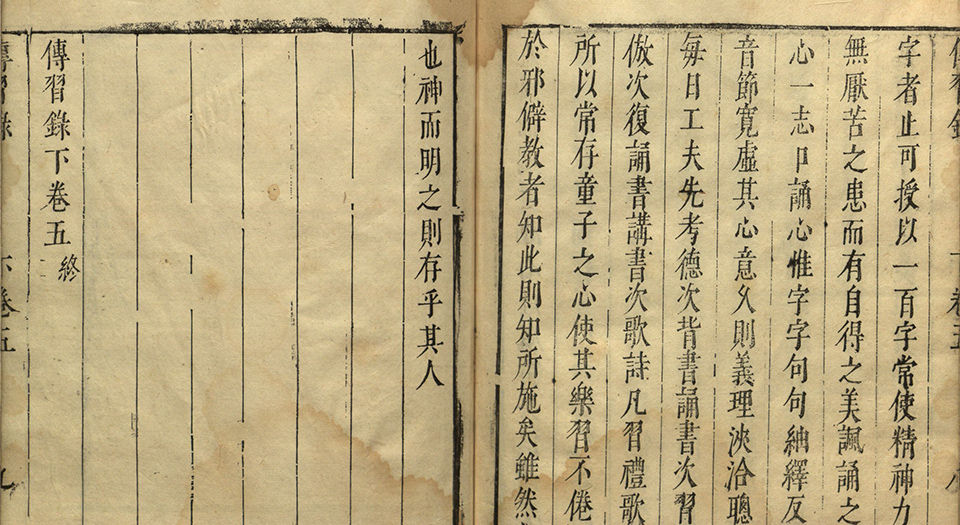 傳習錄 卷五
字者止可授以一百字常使精神力
無厭苦之患而有自得之美諷誦之
心一志口誦心惟字字句句紬繹反
音節寬虛其心意久則義理浹洽聰
每日工夫先考德次背書誦書次習
倣次復誦書講書次歌詩凡習禮歌
所以常存童子之心使其樂習不倦
於邪僻教者知此則知所施矣雖然
也神而明之則存乎其人
傳習錄下卷五終
傳習錄 下卷五